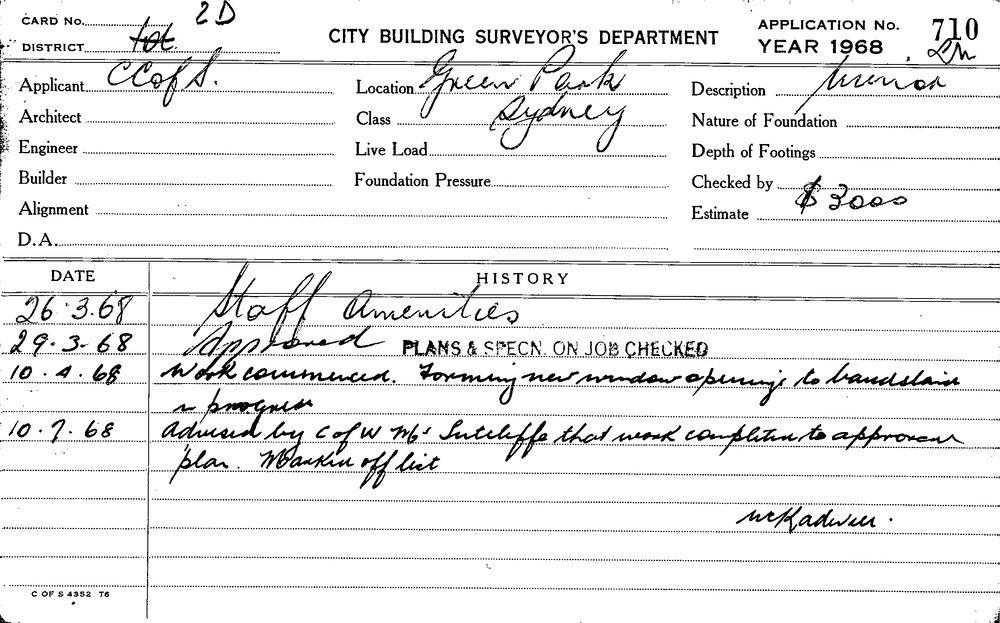 CARD No. 2D
DISTRICT
CITY BUILDING SURVEYOR'S DEPARTMENT
APPLICATION No. 710
YEAR 1968
Applicant C C of S.
Location Green Park
Sydney
Description Minor
Architect
Class
Nature of Foundation
Engineer
Live Load
Depth of Footings
Builder
Foundation Pressure
Checked by
Alignment
Estimate $3000
D.A.
DATE HISTORY
26.3.68 Staff Amenities
29.3.68 Approved PLANS & SPECN. ON JOB CHECKED
10.4.68 Work commenced. Forming new window openings to bandstand
in progress
10.7.68 Advised by C of W Mr Sutcliffe that work completed to approved
plan. Marked off list
C OF S 4352 T6